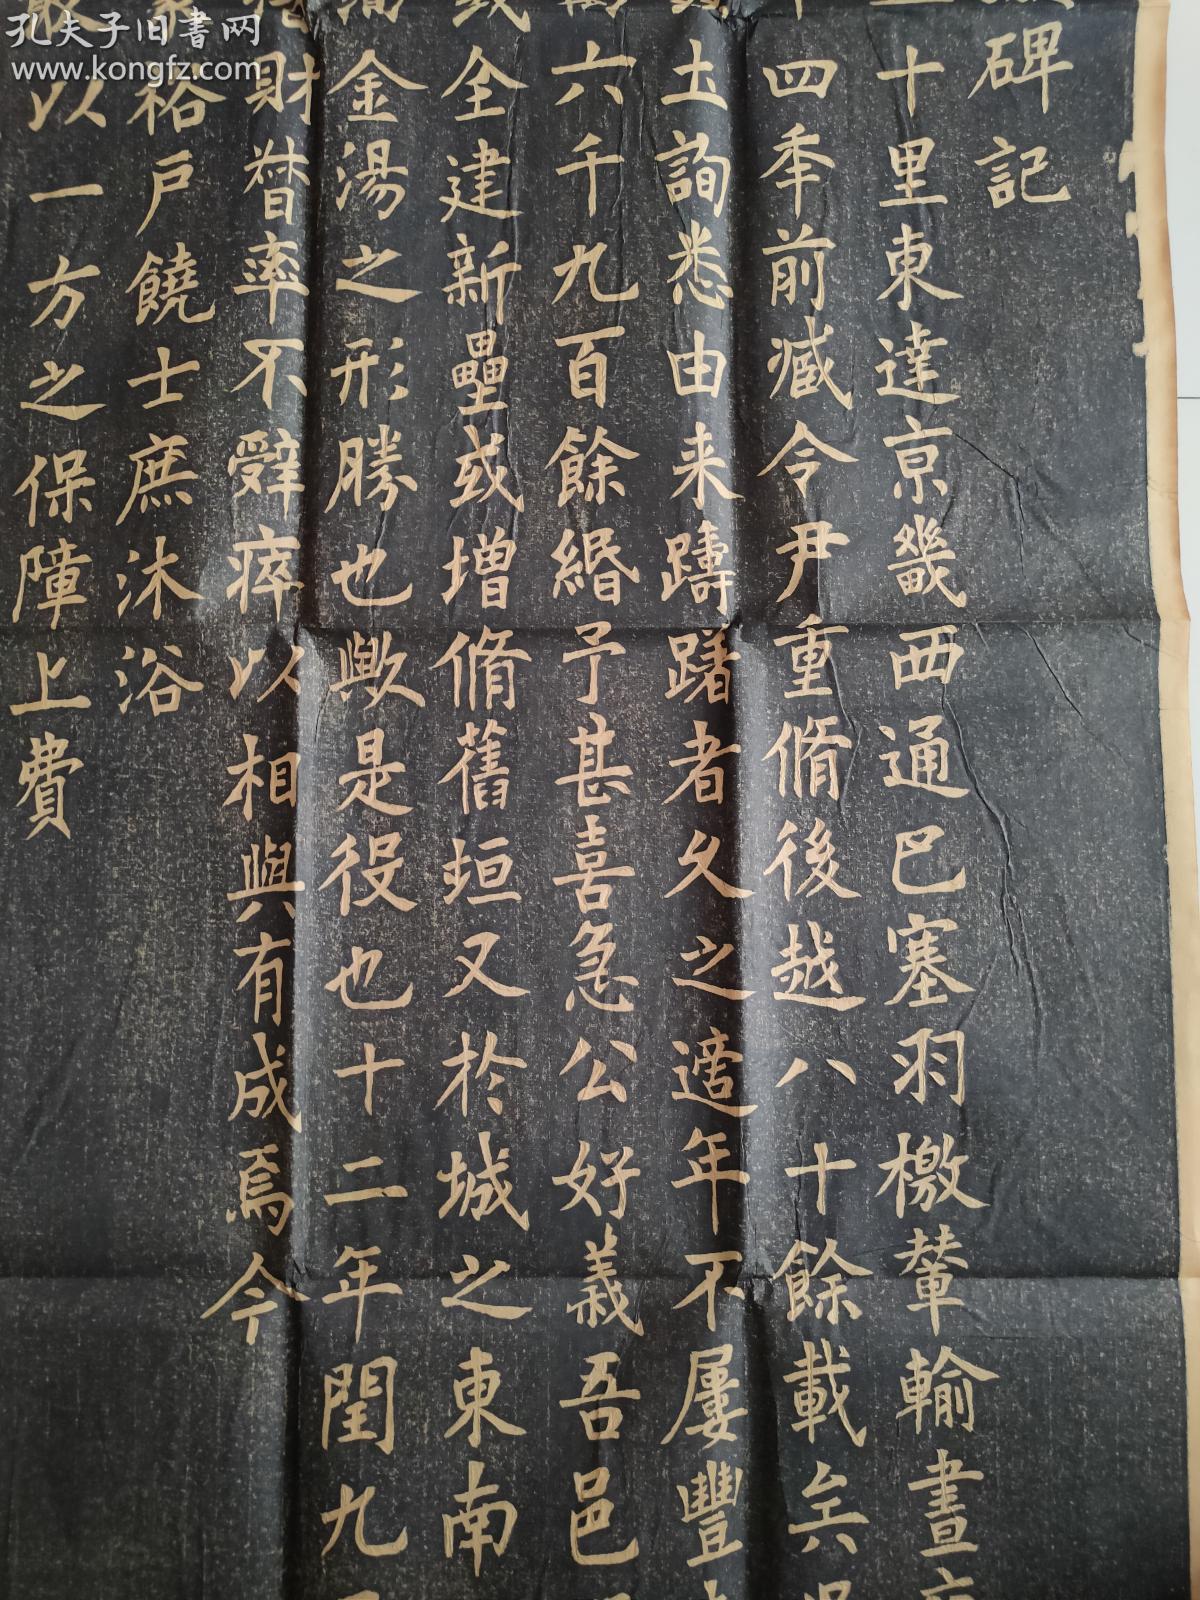 孔夫子旧書网
www.kongfz.com
碑記
十里東達京畿西通巴塞羽檄輦輸晝
四年前臧令尹重脩後越八十餘載矣
土詢悉由来躊躇者久之適年不屢豐
六千九百餘緡予甚喜急公好義吾邑
全建新壘或增脩舊垣又於城之東南
金湯之形勝也歟是役也十二年閏九
財督率不辭瘁以相與有成焉今
裕戶饒士庶沐浴
以一方之保障上費